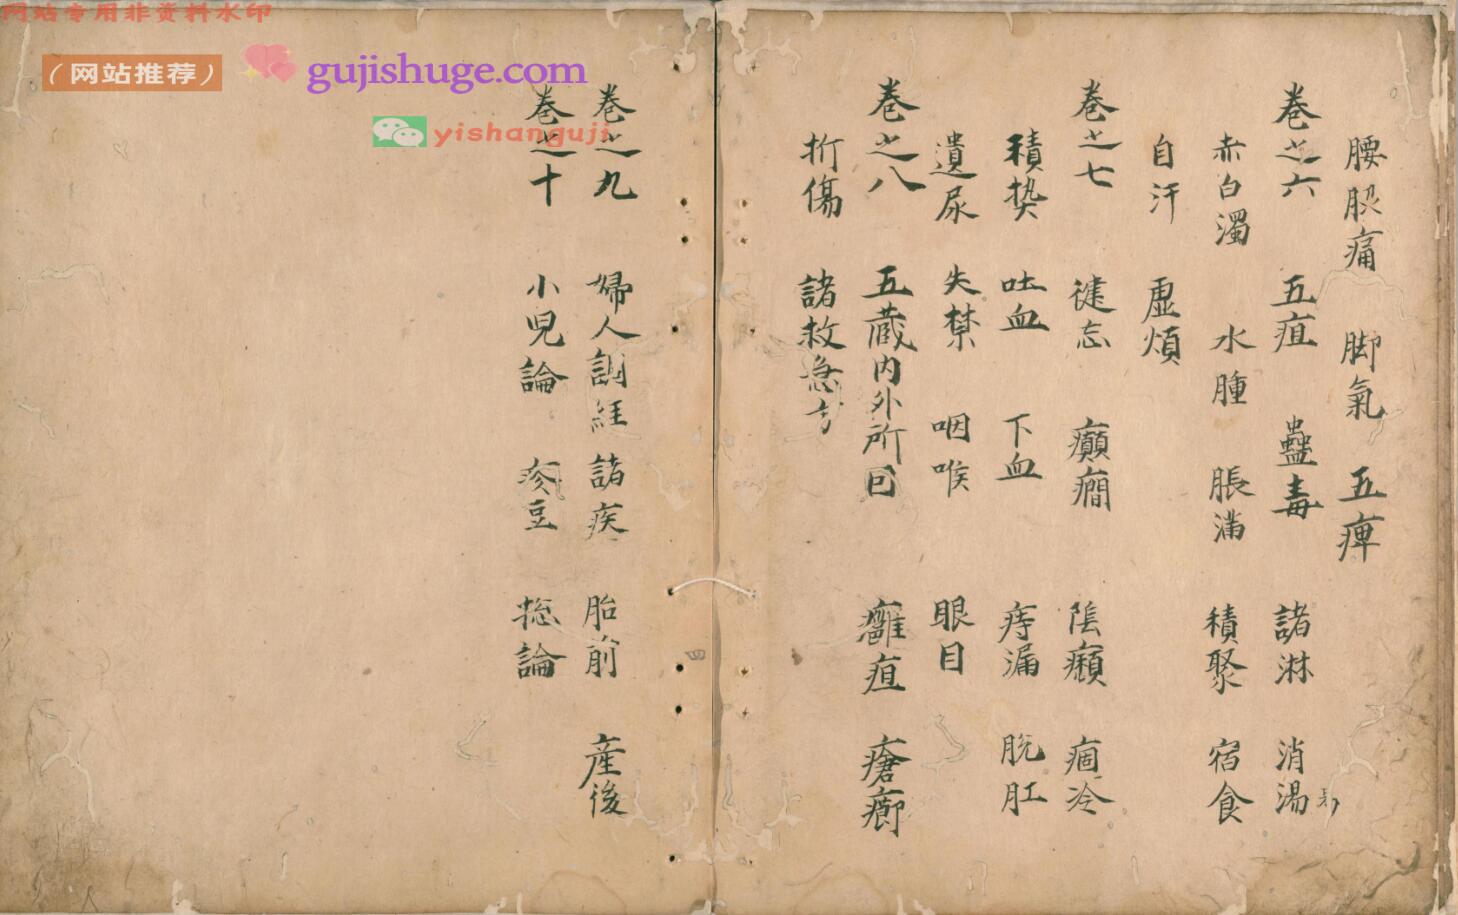 网站专用非资料水印
（网站推荐）
gujishuge.com
yishanguji
腰股痛 脚氣 五痺
卷之六 五疸 蠱毒 諸淋 消湯
赤白濁 水腫 脹滿 積聚 宿食
自汗 虛煩
卷之七 健忘 癲癇 陰癩 痼冷
積𤍠 吐血 下血 痔漏 脫肛
遺尿 失禁 咽喉 眼目
卷之八 五藏内外所因 癰疽 瘡癤
折傷 諸救急方
卷之九 婦人調經 諸疾 胎前 産後
卷之十 小兒論 疹豆 捴論
四